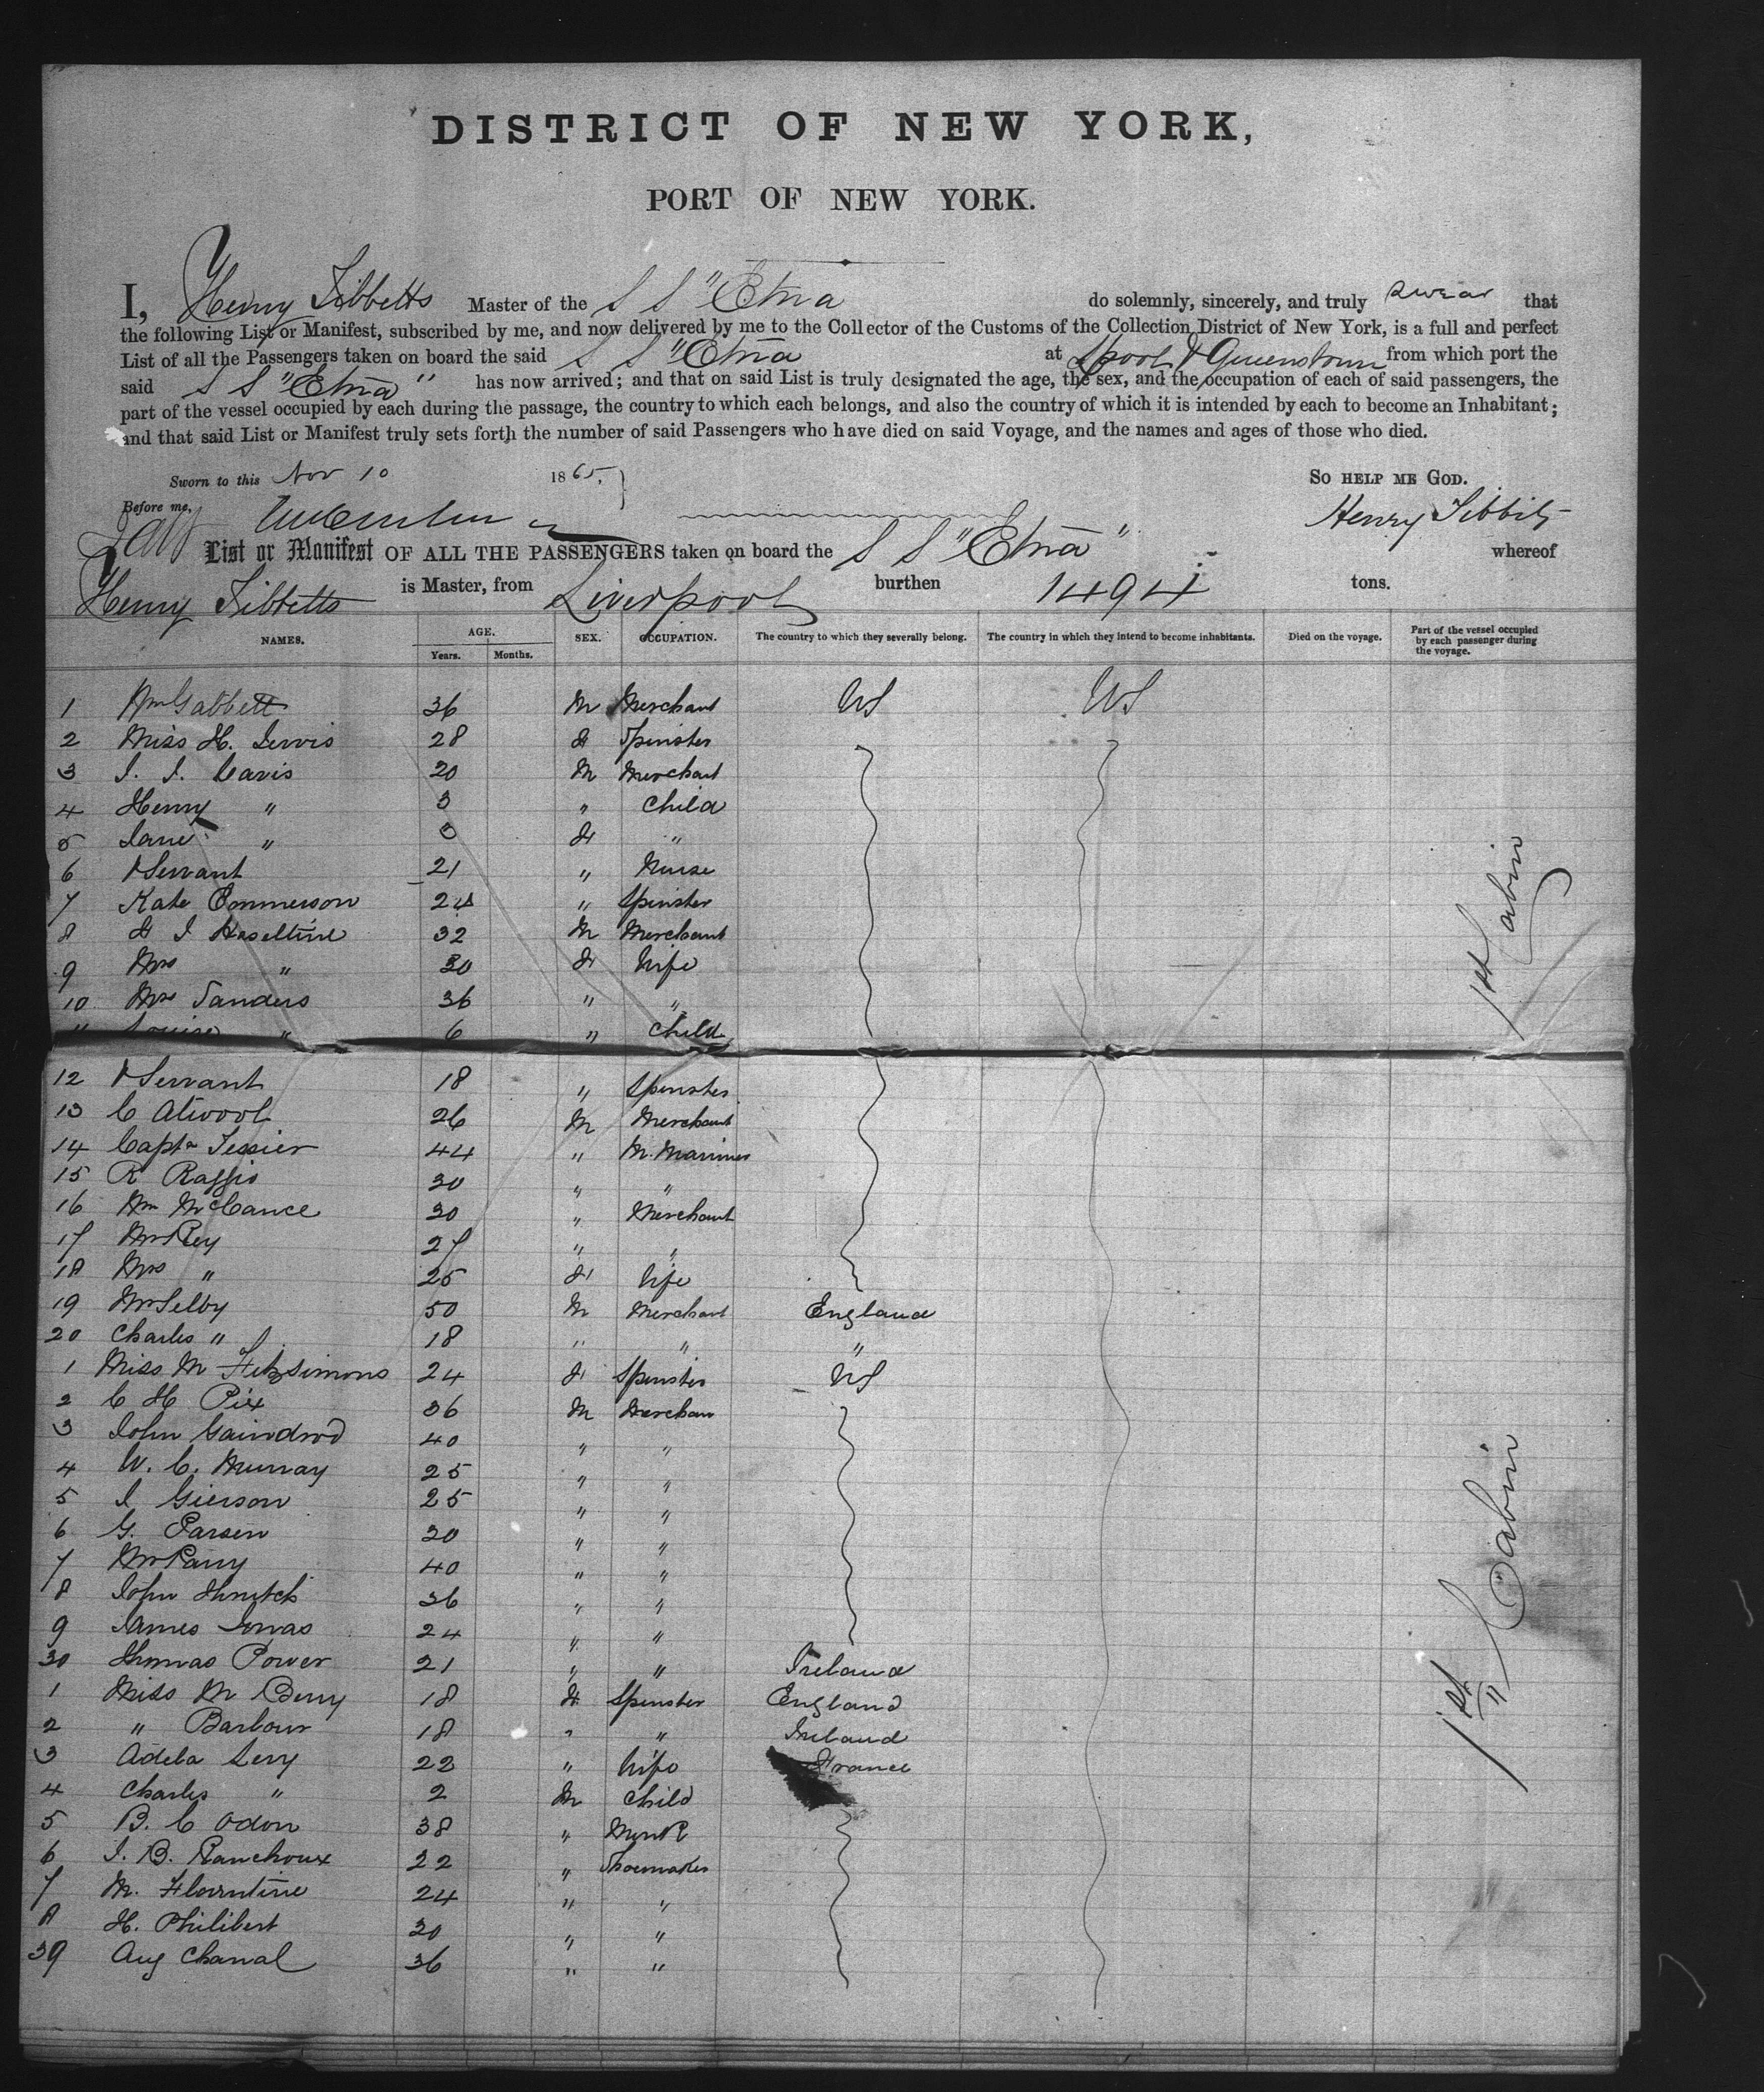 DISTRICT OF NEW YORK,
PORT OF NEW YORK.
I, Henry Tibbetts Master of the S S "Etna do solemnly, sincerely, and truly swear that
the following List or Manifest, subscribed by me, and now delivered by me to the Collector of the Customs of the Collection District of New York, is a full and perfect
List of all the Passengers taken on board the said S S "Etna at Lpool & Queenstown from which port the
said S S "Etna" has now arrived; and that on said List is truly designated the age, the sex, and the occupation of each of said passengers, the
part of the vessel occupied by each during the passage, the country to which each belongs, and also the country of which it is intended by each to become an Inhabitant;
and that said List or Manifest truly sets forth the number of said Passengers who have died on said Voyage, and the names and ages of those who died.
Sworn to this Nov 10 1865, SO HELP ME GOD.
Before me, Henry Tibbits
List or Manifest OF ALL THE PASSENGERS taken on board the S S "Etna" whereof
Henry Tibbetts is Master, from Liverpool burthen 1494 tons.
NAMES. AGE. Years. Months. SEX. OCCUPATION. The country to which they severally belong. The country in which they intend to become inhabitants. Died on the voyage. Part of the vessel occupied by each passenger during the voyage.
1 Wm Gabbett 36 M Merchant US US
2 Miss H. Lewis 28 F Spinster
3 J. J. Davis 20 M Merchant
4 Henry " 3 " Child
5 Jane " 3 F "
6 & Servant 21 " Nurse
7 Kate Emmerson 24 " Spinster
8 F J Haseltine 32 M Merchant
9 Mrs " 30 F Wife
10 Mrs Sanders 36 " "
" Louise " 6 " Child
1st Cabin
12 & Servant 18 " Spinster
13 C Atwool 26 M Merchant
14 Captn Tessier 44 " M. Mariner
15 R 30 " "
16 Wm McCance 30 " Merchant
17 Mr Rey 27 " "
18 Mrs " 25 F Wife
19 Mr Selby 50 M Merchant England
20 Charles " 18 " " "
1 Miss M Fitzsimons 24 F Spinster US
2 C H Pix 36 M Merchan
3 John 40 " "
4 W. C. Murray 25 " "
5 J Gierson 25 " "
6 G. Parsen 30 " "
7 Mr Parry 40 " "
8 John 36 " "
9 James 24 " "
30 Thomas Power 21 " " Ireland
1 Miss M Berry 18 F Spinster England
2 " Barbour 18 " " Ireland
3 Adela Levy 22 " Wife France
4 Charles " 2 M Child
5 B. C Odon 38 "
6 J. B. Ranchoux 22 " Shoemaker
7 M. Florntine 24 " "
8 H. Philibert 30 " "
39 Aug Chanal 36 " "
1st " Cabin